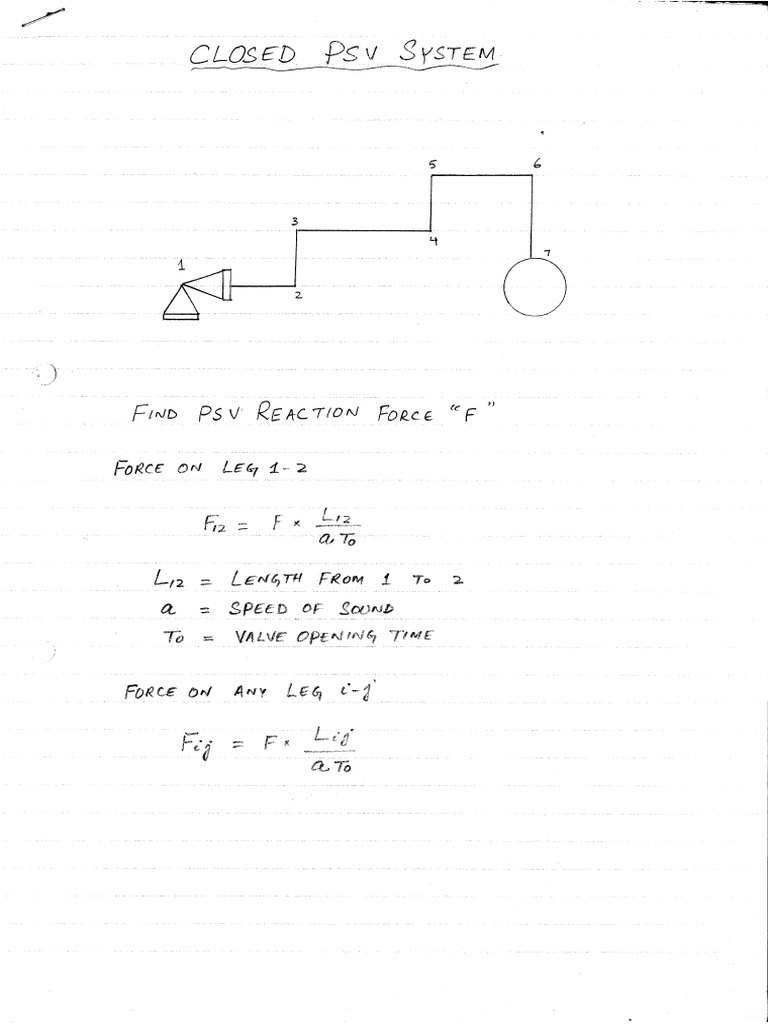 CLOSED PSV SYSTEM
5 6
3
4
1
7
2
FIND PSV REACTION FORCE "F"
FORCE ON LEG 1-2
F12 = F × L12 / a To
L12 = LENGTH FROM 1 TO 2
a = SPEED OF SOUND
To = VALVE OPENING TIME
FORCE ON ANY LEG i-j
Fij = F × Lij / a To